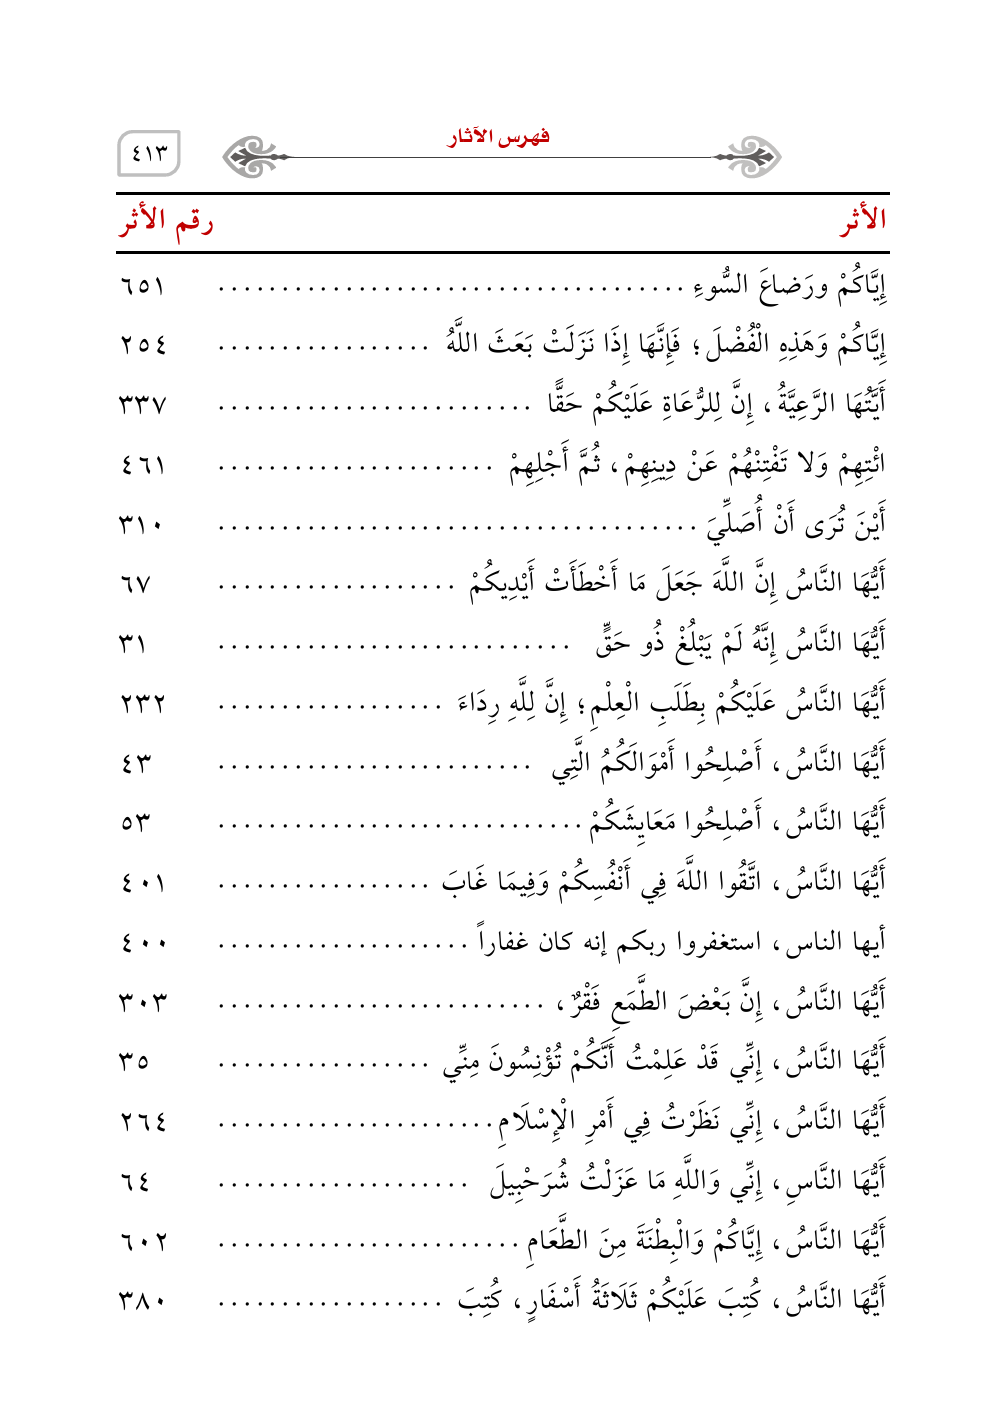 فهرس الآثار
٤١٣
الأثر رقم الأثر
إِيَّاكُمْ ورَضاعَ السُّوءِ ..................................... ٦٥١
إِيَّاكُمْ وَهَذِهِ الْفُضْلَ؛ فَإِنَّهَا إِذَا نَزَلَتْ بَعَثَ اللَّهُ ................. ٢٥٤
أَيَّتُهَا الرَّعِيَّةُ، إِنَّ لِلرُّعَاةِ عَلَيْكُمْ حَقًّا ......................... ٣٣٧
ائْتِهِمْ وَلا تَفْتِنْهُمْ عَنْ دِينِهِمْ، ثُمَّ أَجْلِهِمْ ...................... ٤٦١
أَيْنَ تُرَى أَنْ أُصَلِّيَ ...................................... ٣١٠
أَيُّهَا النَّاسُ إِنَّ اللَّهَ جَعَلَ مَا أَخْطَأَتْ أَيْدِيكُمْ ................... ٦٧
أَيُّهَا النَّاسُ إِنَّهُ لَمْ يَبْلُغْ ذُو حَقٍّ ............................ ٣١
أَيُّهَا النَّاسُ عَلَيْكُمْ بِطَلَبِ الْعِلْمِ؛ إِنَّ لِلَّهِ رِدَاءَ .................. ٢٣٢
أَيُّهَا النَّاسُ، أَصْلِحُوا أَمْوَالَكُمُ الَّتِي ......................... ٤٣
أَيُّهَا النَّاسُ، أَصْلِحُوا مَعَايِشَكُمْ ............................. ٥٣
أَيُّهَا النَّاسُ، اتَّقُوا اللَّهَ فِي أَنْفُسِكُمْ وَفِيمَا غَابَ ................. ٤٠١
أيها الناس، استغفروا ربكم إنه كان غفاراً .................... ٤٠٠
أَيُّهَا النَّاسُ، إِنَّ بَعْضَ الطَّمَعِ فَقْرٌ، .......................... ٣٠٣
أَيُّهَا النَّاسُ، إِنِّي قَدْ عَلِمْتُ أَنَّكُمْ تُؤْنِسُونَ مِنِّي ................. ٣٥
أَيُّهَا النَّاسُ، إِنِّي نَظَرْتُ فِي أَمْرِ الْإِسْلَامِ ...................... ٢٦٤
أَيُّهَا النَّاسِ، إِنِّي وَاللَّهِ مَا عَزَلْتُ شُرَحْبِيلَ .................... ٦٤
أَيُّهَا النَّاسُ، إِيَّاكُمْ وَالْبِطْنَةَ مِنَ الطَّعَامِ ........................ ٦٠٢
أَيُّهَا النَّاسُ، كُتِبَ عَلَيْكُمْ ثَلَاثَةُ أَسْفَارٍ، كُتِبَ .................. ٣٨٠